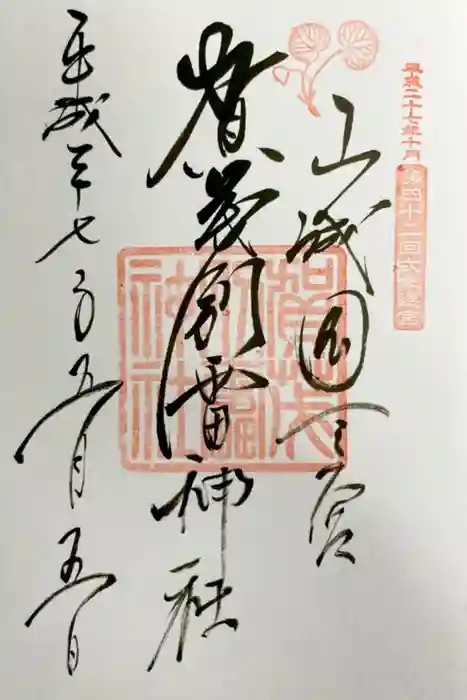 平成二十七年十月
第四十二回式年遷宮
山城国一宮
賀茂別雷神社
賀茂
別雷
神社
平成廿七年五月五日